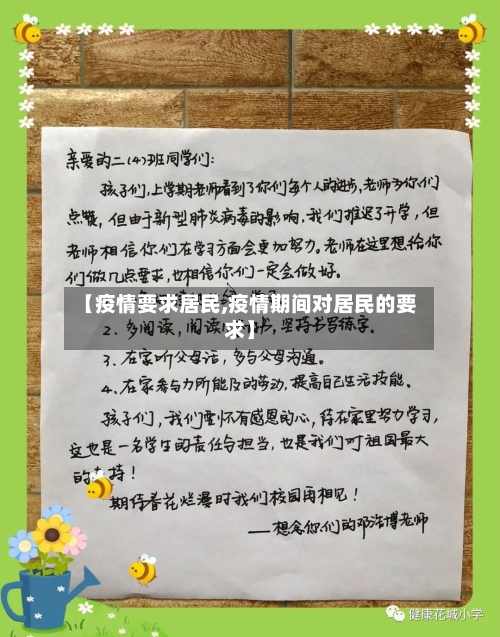 亲爱的二(4)班同学们:
孩子们,上学期老师看到了你们每个人的进步,老师为你们
点赞,但由于新型肺炎病毒的影响,我们推迟了开学,但
老师相信你们在学习方面会更加努力。老师在这里想给你
们做几点要求,也相信你们一定会做好。
【疫情要求居民,疫情期间对居民的要
求】
2、多阅读,阅读 书,坚持书写练字。
3、在家听父母话,多与父母沟通。
4、在家参与力所能及的劳动,提高自己生活技能。
孩子们,我们要怀有感恩的心,待在家里努力学习,
这也是一名学生的责任与担当,也是我们对祖国最大
的支持!
期待春花烂漫时我们校园再相见!
——想念你们的邓浩博老师
健康花城小学